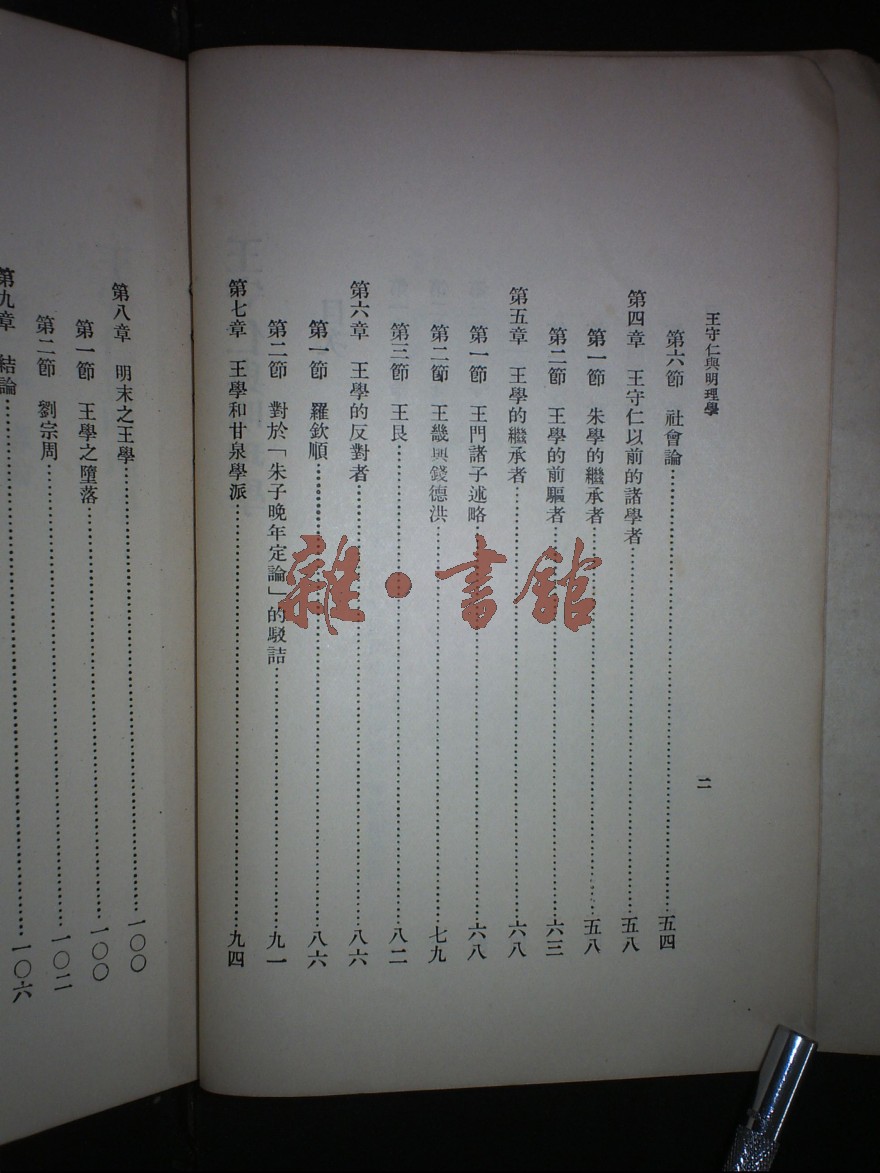 王守仁與明理學
第六節 社會論…………五四
第四章 王守仁以前的諸學者…………五八
第一節 朱學的繼承者…………五八
第二節 王學的前驅者…………六三
第五章 王學的繼承者…………六八
第一節 王門諸子述略…………六八
第二節 王畿與錢德洪…………七九
第三節 王艮…………八二
第六章 王學的反對者…………八六
第一節 羅欽順…………八六
第二節 對於「朱子晚年定論」的駁詰…………九一
第七章 王學和甘泉學派…………九四
二
第八章 明末之王學…………一〇〇
第一節 王學之墮落…………一〇〇
第二節 劉宗周…………一〇二
第九章 結論…………一〇六
雜·書館